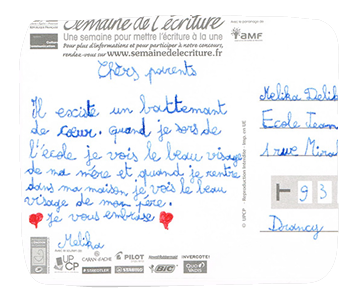 Semaine de l'écriture
Une semaine pour mettre l'écriture à la une
Pour plus d'informations et pour participer à notre concours,
rendez-vous sur www.semainedelecriture.fr
amf
Chèrs parents
Il existe un battemant
de cœur. quand je sors de
l'école je vois le beau visage
de ma mère et quand je rentre
dans ma maison je vois le beau
visage de mon père.
je vous embrase
Melika
Melika
Ecole Jean
1 rue
93
Drancy
© UPCP Reproduction interdite - Imp. en UE
UPCP
CARAN D'ACHE
PILOT
INVERCOTE
STAEDTLER
STANDARD
BIC
QUO VADIS